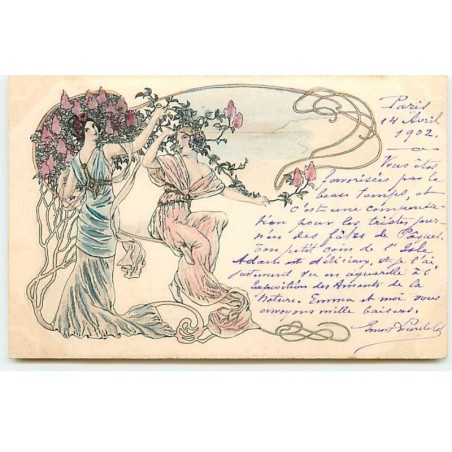 Paris
14 Avril
1902.
Vous êtes
favorisées par le
beau temps, et
c'est une compensa
tion pour les tristes jour
nées des fêtes de Pâques.
Ton petit coin de l'Isle
Adam est délicieux, et je l'ai
justement vu en aquarelle à l'
Exposition des Amants de la
Nature. Emma et moi vous
envoyons mille baisers.